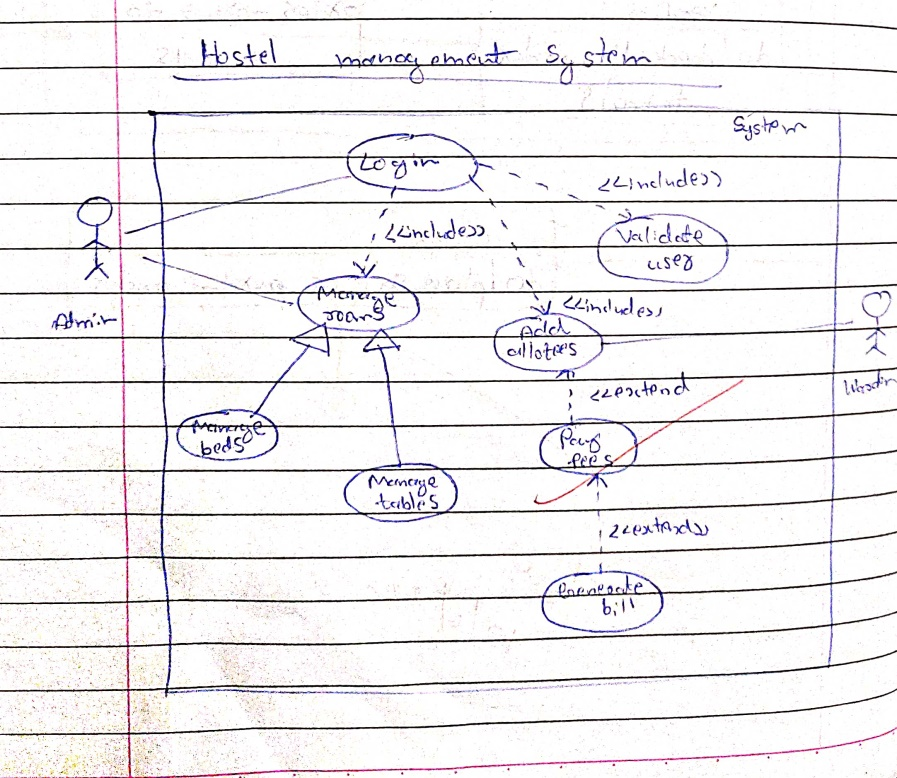 Hostel management System
System
Login
<<includes>>
<<includes>>
Validate
user
Admin
Manage
rooms
<<includes>
Add
allotees
<<extend
Manage
beds
Pay
fees
Manage
tables
<<extends>>
Generate
bill